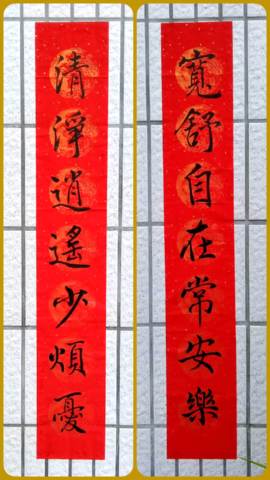 寬舒自在常安樂
清淨逍遙少煩憂